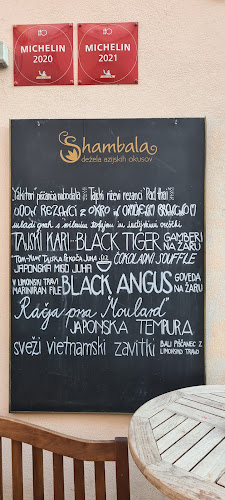 MICHELIN
2020
MICHELIN
2021
Shambala
dežela azijskih okusov
piščančja nabodala Tajski riževi rezanci "Pad thai"
UDON REZANCI Z OKRO
mladi grah s
TAJSKI KARI - BLACK TIGER GAMBERI
NA ŽARU
"TOM-YUM" TAJSKA PEKOČA JUHA ČOKOLADNI SOUFFLE
JAPONSKA MISO JUHA
V LIMONSKI TRAVI
MARINIRAN FILE BLACK ANGUS GOVEDA
NA ŽARU
Račja prsa "Moulard"
JAPONSKA TEMPURA
sveži vietnamski zavitki BALI PIŠČANEC Z
LIMONSKO TRAVO